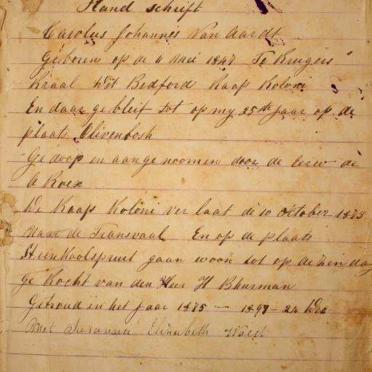 Hand schrift
Carolus Johannes Van Aardt
Geboren op de 4 Mei 1847 Te Krugers
Kraal Dist Bedford Kaap Koloni
En daar geblijf tot op my 25ste Jaar op de
plaats Olivenbosh
Gedoop en aangenoomen door de leeraar de
Roex
De Kaap Koloni ver laat de 10 October 1875
Naar de Transvaal En op de plaats
Steenkoolspruit gaan woon tot op dezen dag
ge Kocht van den Heer H Buurman
Getroud in het Jaar 1875 — 1897 - 24
Met Susanna Elizabeth